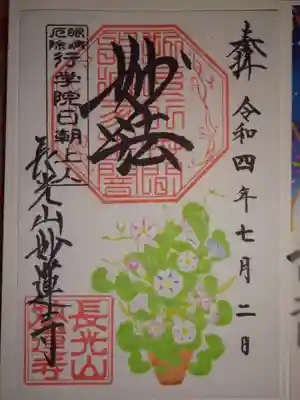 奉拝 令和四年七月二日
妙法
眼病
厄除
行学院日朝上人
長光山妙蓮寺
長光山
妙蓮寺